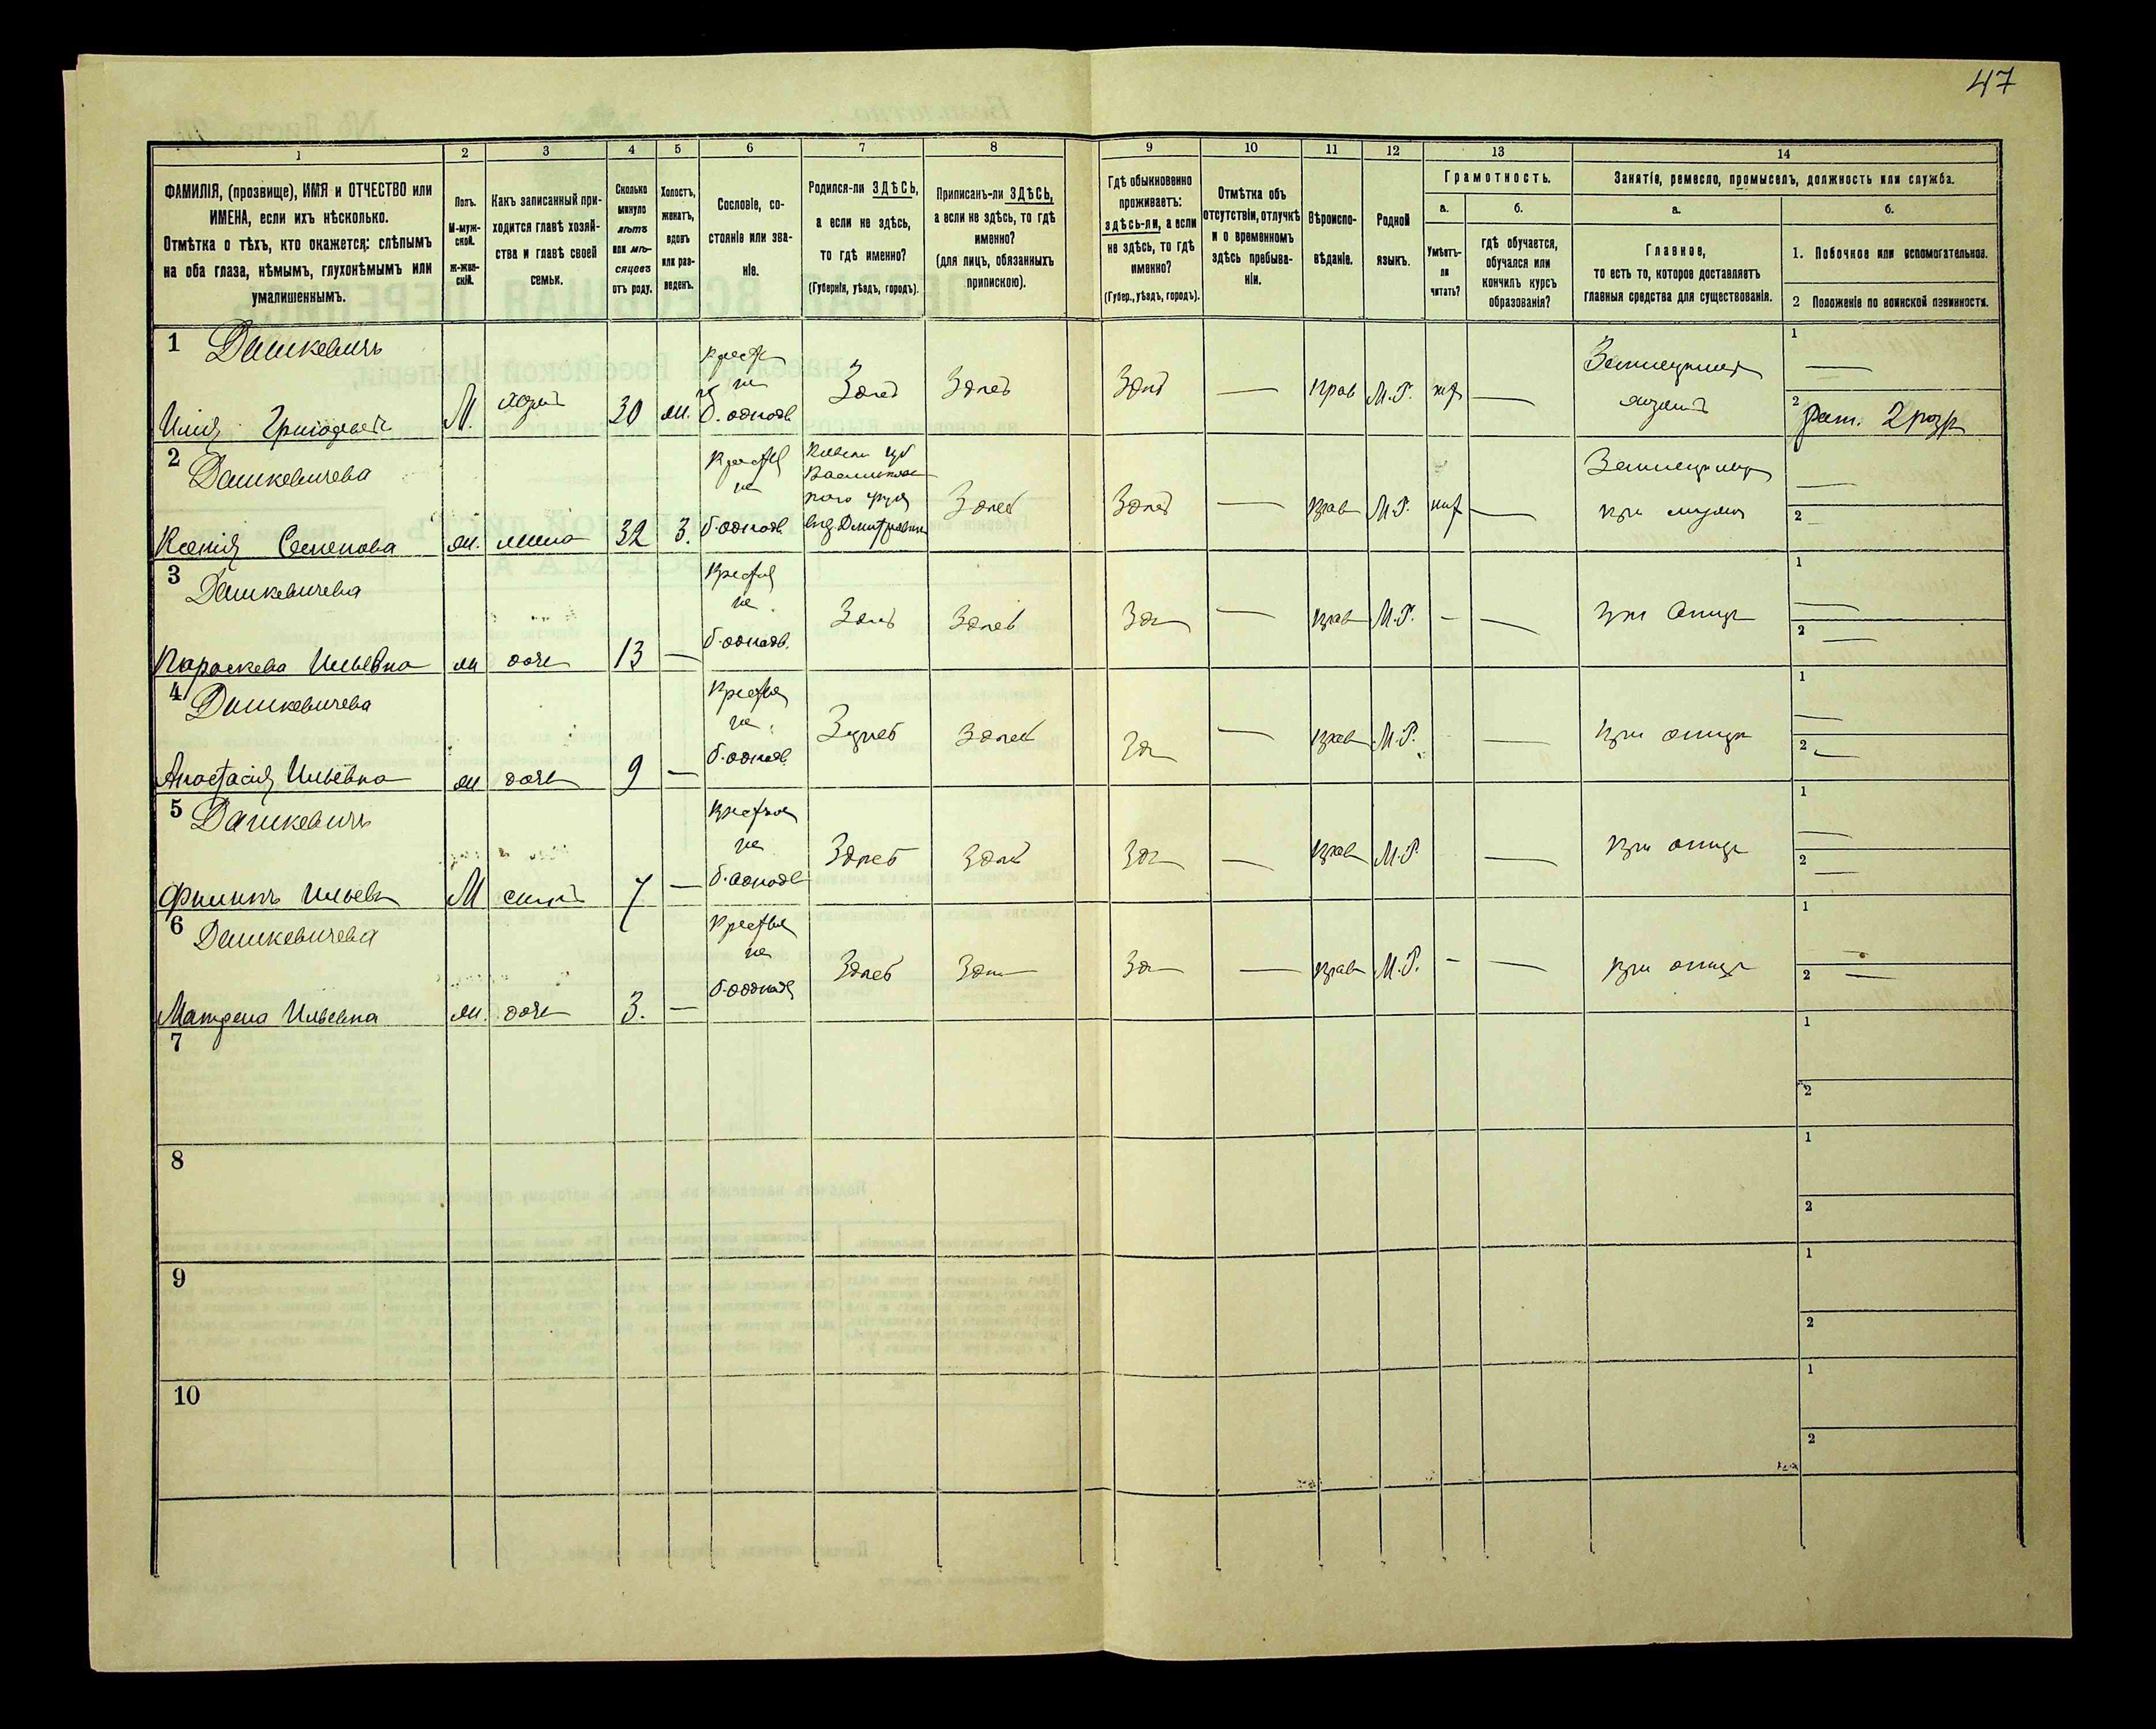 47
1 2 3 4 5 6 7 8 9 10 11 12 13 14
ФАМИЛІЯ, (прозвище), ИМЯ и ОТЧЕСТВО или
ИМЕНА, если ихъ нѣсколько.
Отмѣтка о тѣхъ, кто окажется: слѣпымъ
на оба глаза, нѣмымъ, глухонѣмымъ или
умалишеннымъ.
Полъ.
М-муж-
ской.
Ж-жен-
скій.
Какъ записанный при-
ходится главѣ хозяй-
ства и главѣ своей
семьи.
Сколько
минуло
лѣтъ
или мѣ-
сяцевъ
отъ роду.
Холостъ,
женатъ,
вдовъ
или раз-
веденъ.
Сословіе, со-
стояніе или зва-
ніе.
Родился-ли ЗДѢСЬ,
а если не здѣсь,
то гдѣ именно?
(Губернія, уѣздъ, городъ).
Приписанъ-ли ЗДѢСЬ,
а если не здѣсь, то гдѣ
именно?
(для лицъ, обязанныхъ
припискою).
Гдѣ обыкновенно
проживаетъ:
здѣсь-ли, а если
не здѣсь, то гдѣ
именно?
(Губер., уѣздъ, городъ).
Отмѣтка объ
отсутствіи, отлучкѣ
и о временномъ
здѣсь пребыва-
ніи.
Вѣроиспо-
вѣданіе.
Родной
языкъ.
Грамотность.
а.
Умѣетъ-
ли
читать?
б.
гдѣ обучается,
обучался или
кончилъ курсъ
образованія?
Занятіе, ремесло, промыселъ, должность или служба.
а.
Главное,
то есть то, которое доставляетъ
главныя средства для существованія.
б.
1. Побочное или вспомогательное.
2 Положеніе по воинской повинности.
1 Дашкевичъ
Илія Григорьевъ М. 30 б. однодв. Здѣсь Здѣсь Здѣсь — прав М.Р. — 1 — 2 рат. 2 разр
2 Дашкевичева
Ксенія Семенова жи. жена 32 З. б. однодв. Здѣсь Здѣсь — прав М.Р. — 1 — 2 —
3 Дашкевичева
Параскева Ильевна жи дочь 13 — б. однодв. Здѣсь Здѣсь Здѣ — прав М.Р. — — при отцѣ 1 — 2 —
4 Дашкевичева
Анастасія Ильевна жи дочь 9 — б. однодв. Здѣсь Здѣсь Здѣ — прав М.Р. — при отцѣ 1 — 2 —
5 Дашкевичъ
Филиппъ Ильевъ М сынъ 7 — б. однодв Здѣсь Здѣсь Здѣ — прав М.Р. — при отцѣ 1 — 2 —
6 Дашкевичева
Матрена Ильевна жи. дочь 3. — б. однодв Здѣсь Здѣ Здѣ — прав М.Р. — — при отцѣ 1 — 2 —
7 1
2
8 1
2
9 1
2
10 1
2